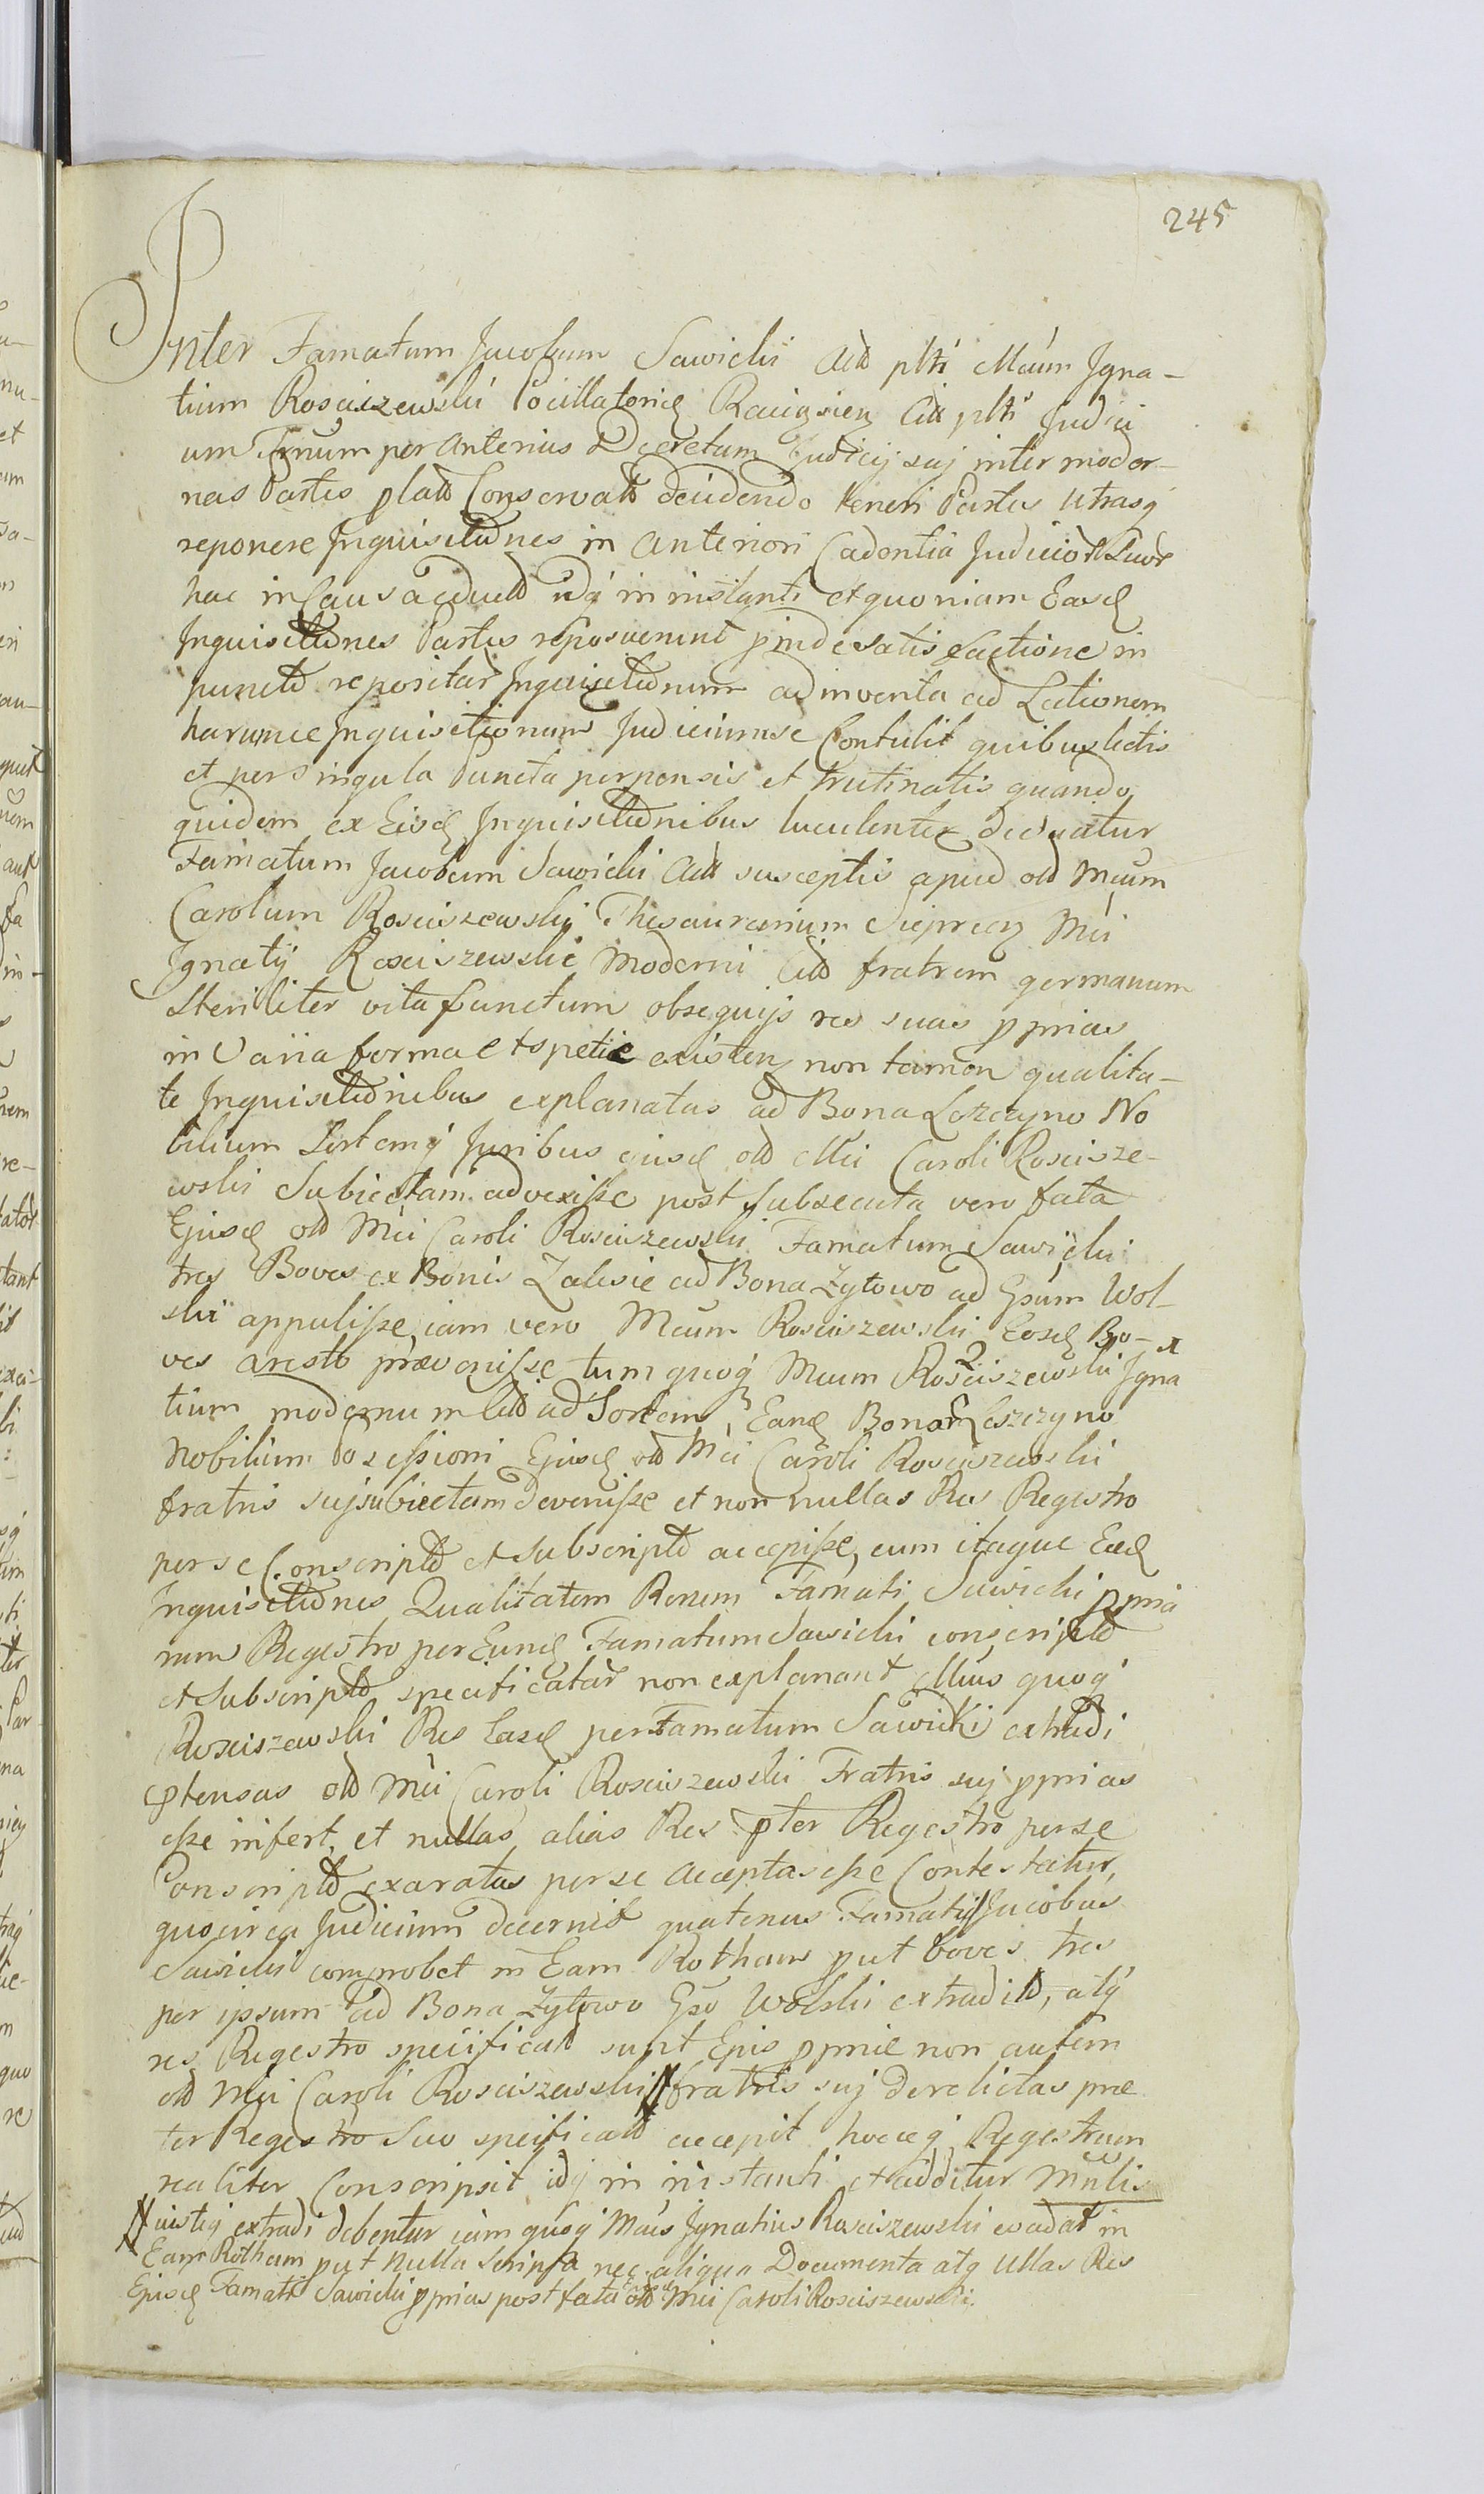 245
Inter Famatum Jacobum Sawicki Act pltt Mcum Igna-
tium Rosciszewski Pocillatorie Raciązien Citt pltt Judici
um Trnum per anterius Decretum Judicij suj inter moder-
nas Partes platt Conservatt decidendo teneri Partes utrasq
reponere Inquisitiones in anteriori Cadentia Judicior
hac in Causa idq in instanti et quoniam Easd
Inquisitiones Partes reposuerunt satisfactione in
punctt repositar Inquisitionum adinventa ad Lectionem
harumce Inquisitionum Judicium se Contulit quibus lectis
et per singula Puncta perpensis et trutinatis quando
quidem ex Eisd Inquisitionibus luculenter
Famatum Jacobum Sawicki Act susceptis apud olt Mcum
Carolum Rosciszewski Thesaurarium Sieprecz Mci
Ignatij Rosciszewski Moderni Citt fratrem germanum
steriliter vita functum obsequijs res suas pprias
in Varia forma et spetie existen non tamen qualita-
te Inquisitionibus explanatas ad Bona Leszczyno No
bilium Sortemq Juribus eiusd olt Mci Caroli Roscisze-
wski Subiectam advexisse post subsecuta vero fata
Ejusd olt Mci Caroli Rosciszewski Famatum Sawicki
tres Boves ex Bonis Zalesie ad Bona Zytowo ad Gsum Wol-
ski appulisse, iam vero Mcum Rosciszewski Eosd Bo-
ves aresto prævenisse tum quoq Mcum Rosciszewski Igna
tium modernum Citt ad Sortem Eand Bonor Leszczyno
Nobilium Possessioni Ejusd olt Mci Caroli Rosciszewski
fratris suj subiectam devenisse et non nullas Res Regestro
per se Conscriptt et subscriptt accepisse, cum itaque Eæd
Inquisitiones Qualitatem Rerum Famati Sawicki ppria
rum Regestro per Eund Famatum Sawicki conscriptt
et subscriptt specificatar non explanant Mcus quoq
Rosciszewski Res Easd per Famatum Sawicki extradi
ptensas olt Mci Caroli Rosciszewski Fratris suj pprias
esse infert, et nullas alias Res pter Regestro per se
Conscriptt exaratas per se acceptas esse Contestatur,
quocirca Judicium decernit quatenus Famatus Jacobus
Sawicki comprobet in Eam Rotham put boves tres
per ipsum ad Bona Zytowo Gso Wolski extraditt, atq
res Regestro specificatt sunt Epis pprie non autem
olt Mci Caroli Rosciszewski // fratris suj derelictas præ
ter Regestro Suo specificatt accepit hocceq Regestrum
realiter Conscripsit idq in instanti et additur Mnlis
// eistiq extradi debentur iam quoq Mcus Ignatius Rosciszewski evadat in
Eam Rotham put nulla Scripta nec aliqua Documenta atq ullas Res
Ejusd Famati Sawicki pprias post fata Ejusd olt Mci Caroli Rosciszewski